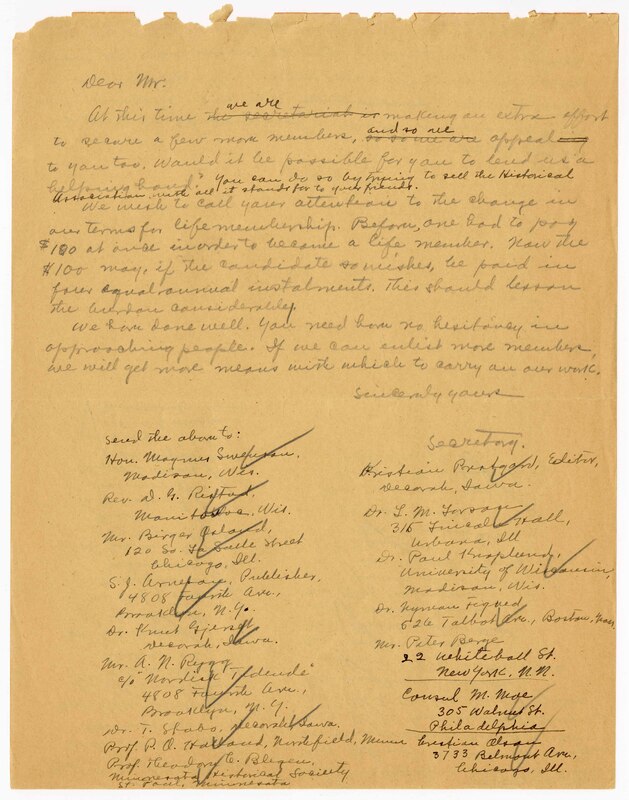 Dear Mr.
At this time the secretariat is we are making an extra effort
to secure a few more members, so we are and so we appeal
to you too. Would it be possible for you to lend us a
helping hand? You can do so by trying to sell the Historical
Association with all it stands for to your friends.
We wish to call your attention to the change in
our terms for life membership. Before, one had to pay
$100 at once in order to become a life member. Now the
$100 may, if the candidate so wishes, be paid in
four equal annual instalments. This should lesson
the burden considerably.
We have done well. You need have no hesitancy in
approaching people. If we can enlist more members,
we will get more means with which to carry on our work.
Sincerely yours
Secretary.
Send the above to:
Hon. Magnus Swenson,
Madison, Wis.
Rev. D. G. Ristad,
Manitowoc, Wis.
Mr. Birger Osland,
120 So. La Salle Street
Chicago, Ill.
S. J. Arneson, Publisher,
4808 Ave.,
Brooklyn, N.Y.
Dr. Knut Gjerset
Decorah, Iowa.
Mr. A. N. Rygg
c/o "Nordisk Tidende"
4808 Ave.,
Brooklyn, N.Y.
Dr. T. Stabo, Decorah, Iowa.
Prof. R. O. Holland, Northfield, Minn
Prof. Theodore C. Blegen,
Minnesota Historical Society
St. Paul, Minnesota
Kristian Prestgard, Editor,
Decorah, Iowa.
Dr. L. M. Larson
316 Lincoln Hall,
Urbana, Ill
Dr. Paul Knaplund,
University of Wisconsin,
Madison, Wis.
Dr.
626 Talbot Ave., Boston, Mass.
Mr. Peter Berge
22 Whitehall St.
New York, N.N.
Consul M. Moe
305 Walnut St.
Philadelphia
Cristian Olsen
3733 Belmont Ave.,
Chicago, Ill.